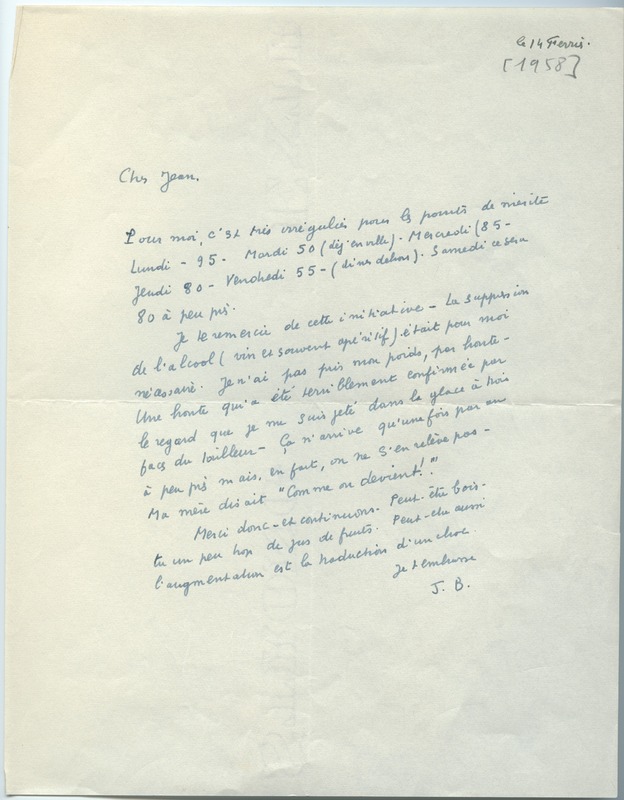 le 14 Février.
[1958]
Cher Jean.
Pour moi, c'est très irrégulier pour les points de mérite
Lundi - 95 - Mardi 50 (déj. en ville) - Mercredi (85 -
Jeudi 80 - Vendredi 55 - (dîner dehors). Samedi ce sera
80 à peu près.
Je te remercie de cette initiative - La suppression
de l'alcool (vin et souvent apéritif) était pour moi
nécessaire. Je n'ai pas pris mon poids, par honte -
Une honte qui a été terriblement confirmée par
le regard que je me suis jeté dans la glace à trois
faces du tailleur - Ça n'arrive qu'une fois par an
à peu près mais, en fait, on ne s'en relève pas -
Ma mère disait "Comme on devient!"
Merci donc - et continuons. Peut-être bois-
tu un peu trop de jus de fruits. Peut-être aussi
l'augmentation est la traduction d'un choc.
Je t'embrasse
J. B.